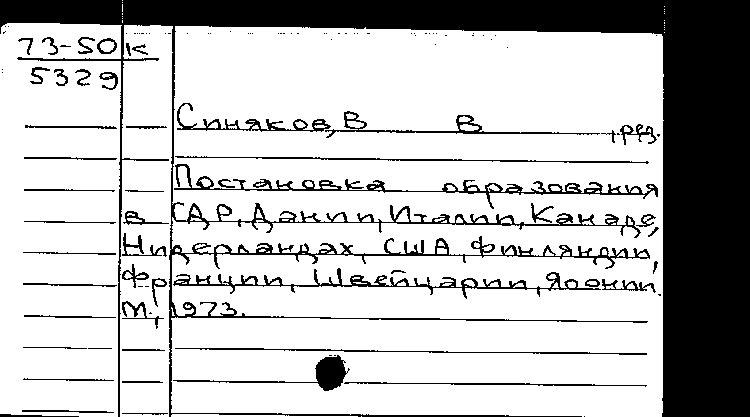 73-50 к
5329
Синяков, В В , ред.
Постановка образования
в ГДР, Дании, Италии, Канаде,
Нидерландах, США, Финляндии,
Франции, Швейцарии, Японии.
М., 1973.